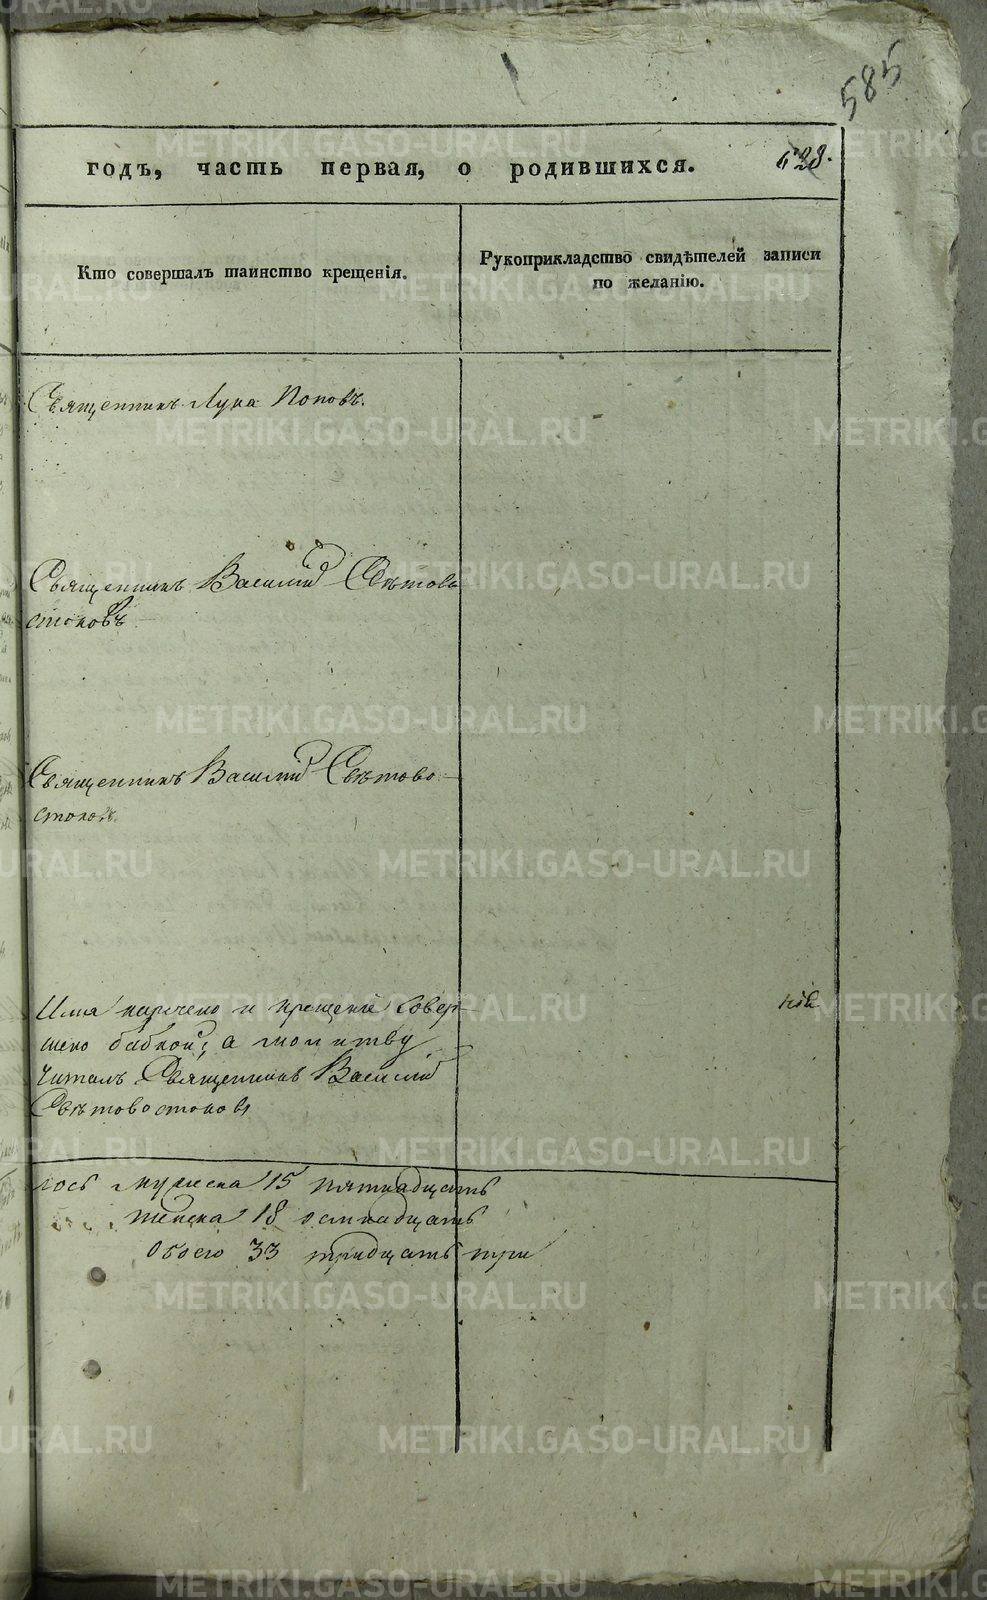 585
годъ, часть первая, о родившихся. 628.
Кто совершалъ таинство крещенія.
Рукоприкладство свидѣтелей записи
по желанію.
Священникъ Лука Поповъ.
Священникъ Василій Свѣтово
стоковъ
Священникъ Василій Свѣтово
стоковъ
Имя наречено и крещеніе совер
шено бабкой, а молитву
читалъ Священникъ Василій
Свѣтовостоковъ
лось мужеска 15 пятнадцать
женска 18 осмнадцать
Обоего 33 тридцать три
METRIKI.GASO-URAL.RU